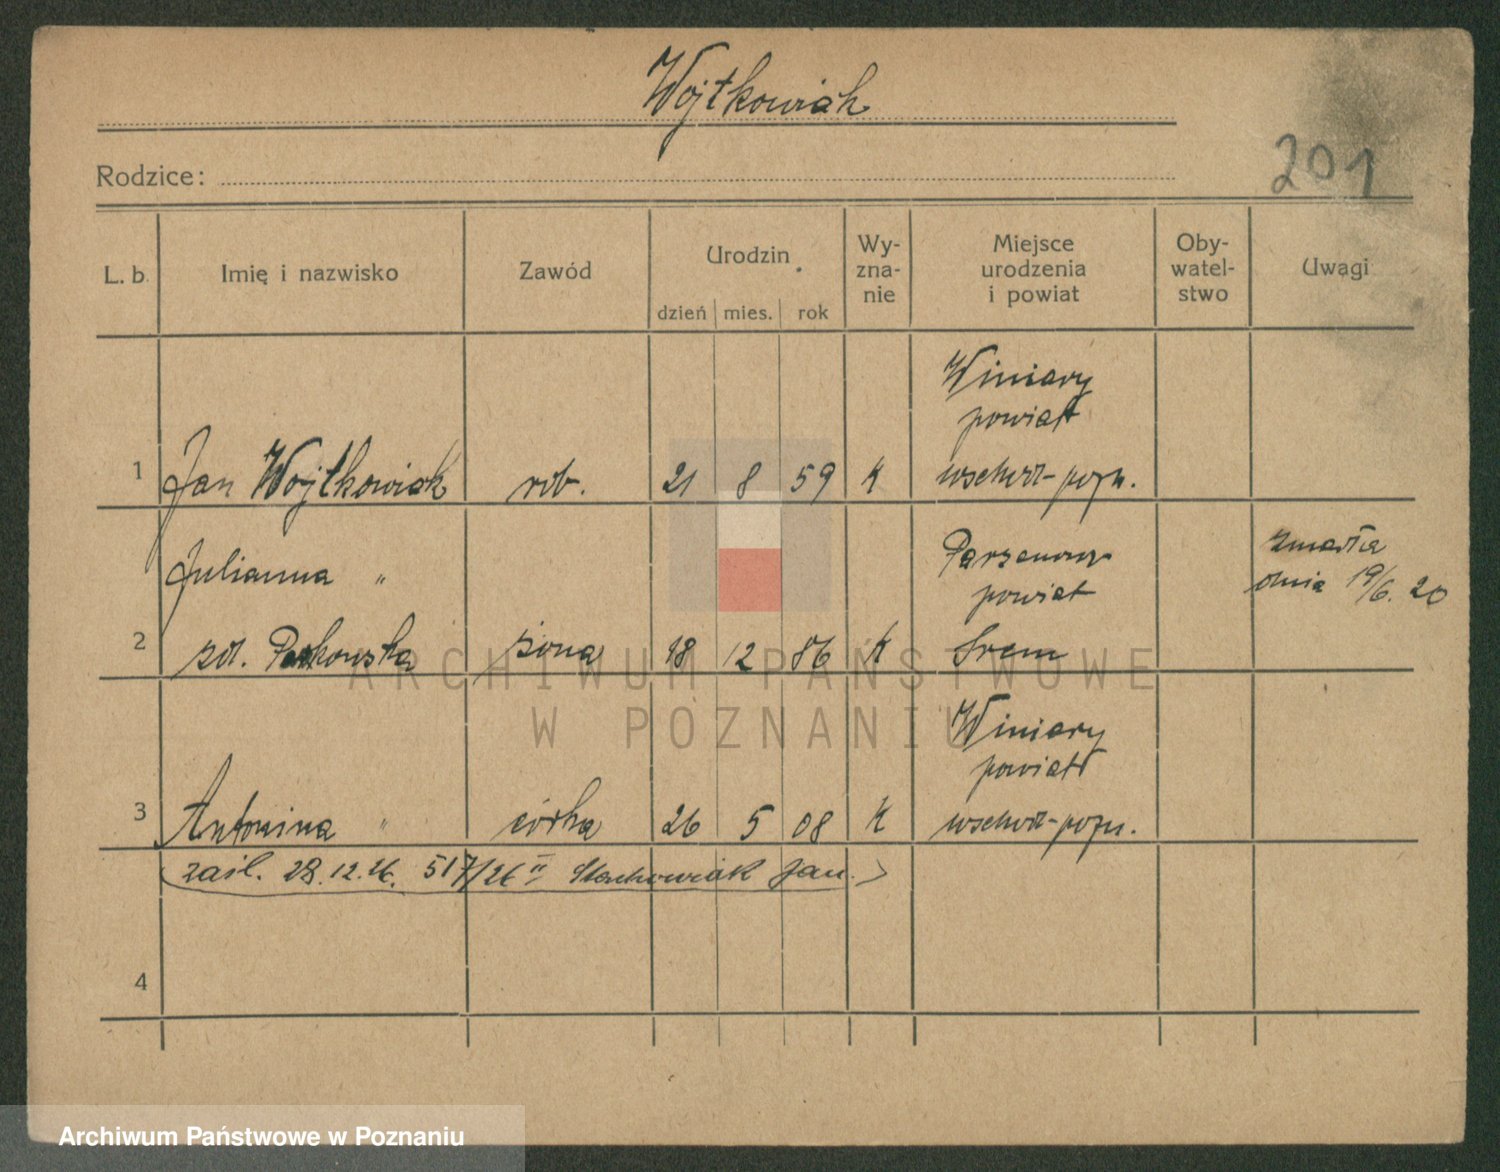 Wojtkowiak
Rodzice:
201
L. b. Imię i nazwisko Zawód Urodzin dzień mies. rok Wy-zna-nie Miejsce urodzenia i powiat Oby-watel-stwo Uwagi
Winiary
powiat
1 Jan Wojtkowiak rob. 21 8 59 K wschod-pozn.
Julianna " powiat zmarła
dnia 19/6. 20
2 żona 18 12 K Śrem
Winiary
powiat
3 Antonina " córka 26 5 08 K wschod-pozn.
28.12.26. 517/26 II Stachowiak Jan.
4
ARCHIWUM PAŃSTWOWE
W POZNANIU
Archiwum Państwowe w Poznaniu